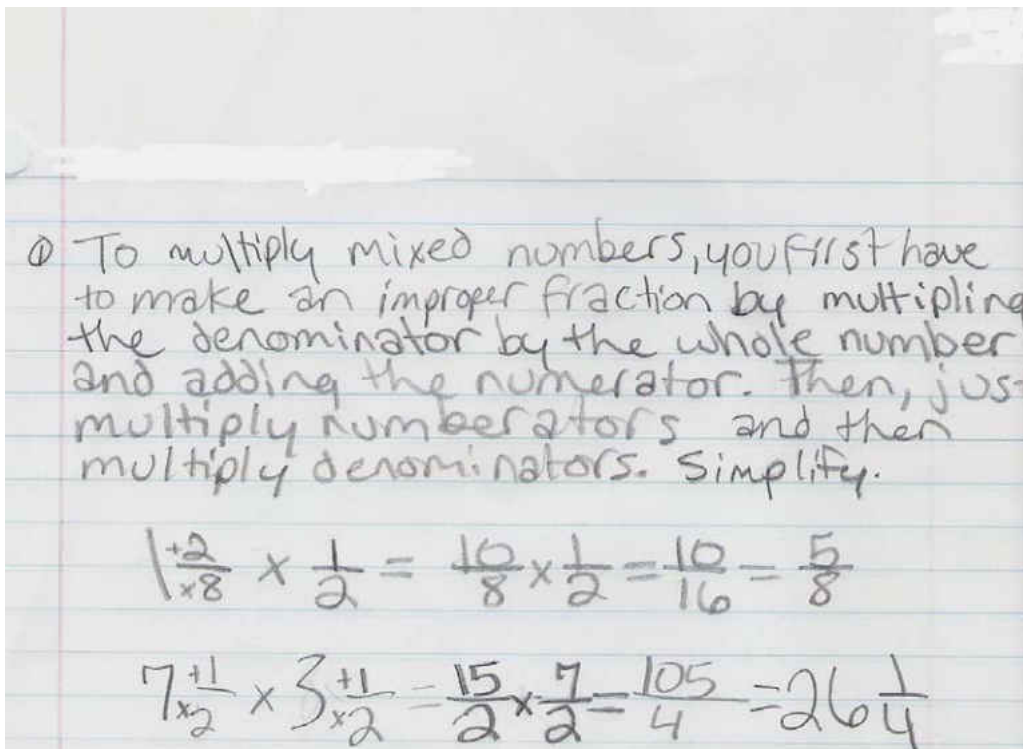 ① To multiply mixed numbers, you first have
to make an improper fraction by multipling
the denominator by the whole number
and adding the numerator. Then, jus
multiply numberators and then
multiply denominators. Simplify.
1 +2/×8 × 1/2 = 10/8 × 1/2 = 10/16 = 5/8
7 +1/×2 × 3 +1/×2 = 15/2 × 7/2 = 105/4 = 26 1/4